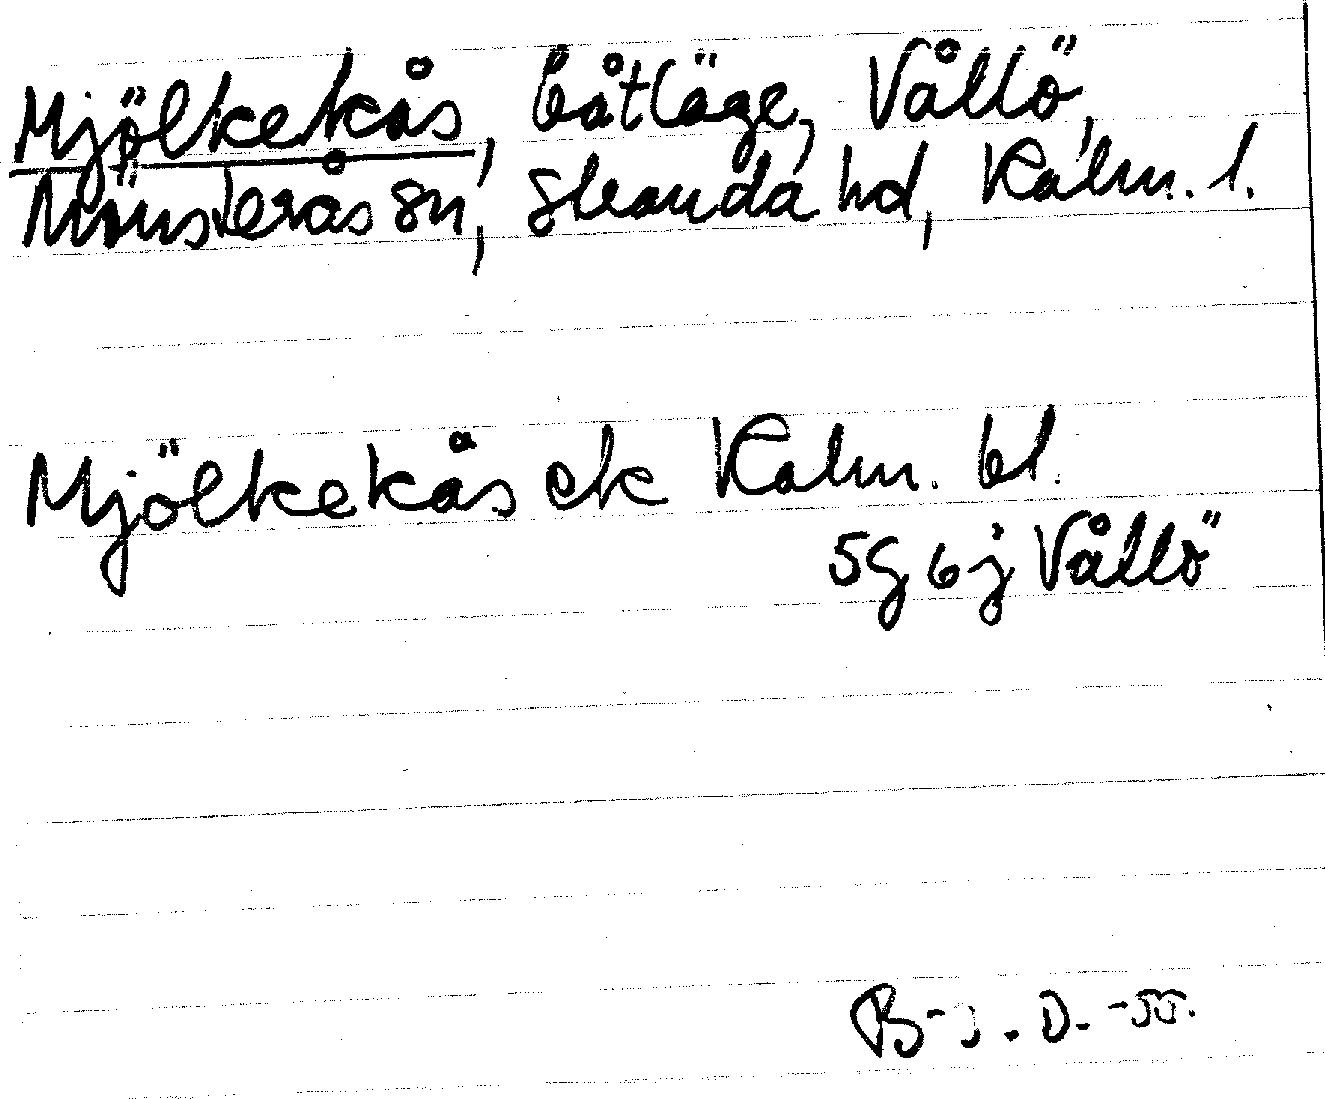 Mjölkekås, båtläge, Vållö,
Mönsterås sn, Stranda hd, Kalm. l.
Mjölkekås ek Kalm. bl.
5g 6j Vållö
B-J. D. -55.